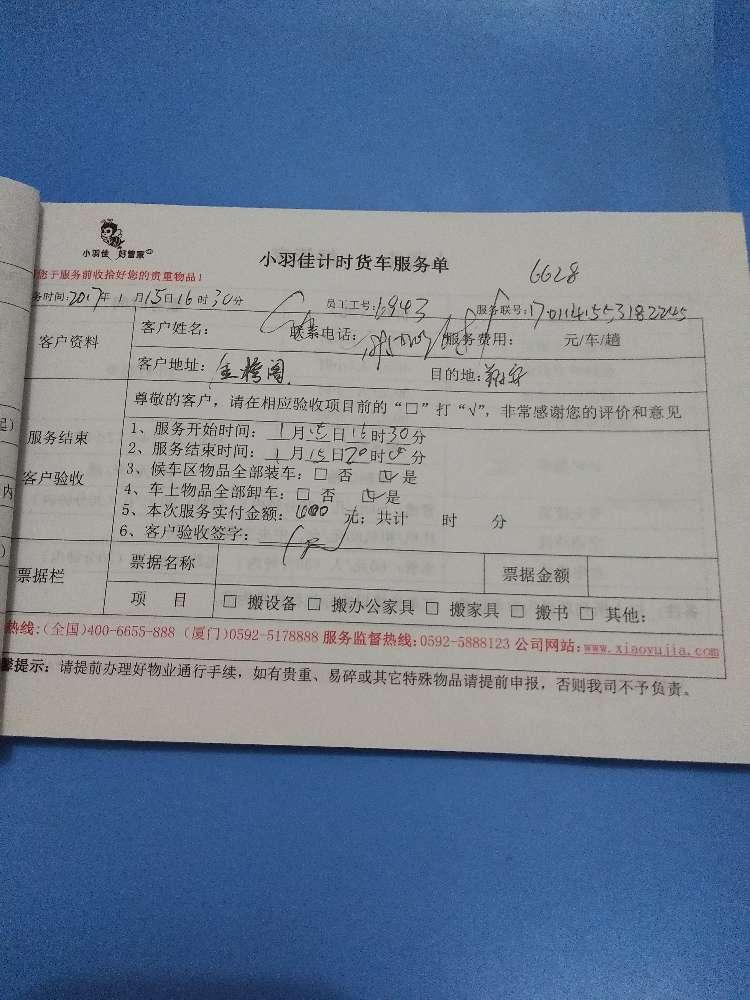 小羽佳 好管家
小羽佳计时货车服务单
6628
您于服务前收拾好您的贵重物品！
务时间:2017年1月15日16时30分 员工工号:6943 服务联号:1701141553182245
客户资料 客户姓名： 联系电话： 服务费用： 元/车/趟
客户地址： 目的地:翔安
服务结束
客户验收
尊敬的客户，请在相应验收项目前的“□”打“√”，非常感谢您的评价和意见
1、服务开始时间：1月15日16时30分
2、服务结束时间：1月15日20时0分
3、候车区物品全部装车：□ 否 ☑是
4、车上物品全部卸车：□ 否 ☑是
5、本次服务实付金额：1000元；共计 时 分
6、客户验收签字：
票据栏 票据名称 票据金额
项 目 □ 搬设备 □ 搬办公家具 □ 搬家具 □ 搬书 □ 其他：
热线:(全国)400-6655-888 (厦门)0592-5178888 服务监督热线:0592-5888123 公司网站:www.xiaoyujia.com
馨提示：请提前办理好物业通行手续，如有贵重、易碎或其它特殊物品请提前申报，否则我司不予负责。